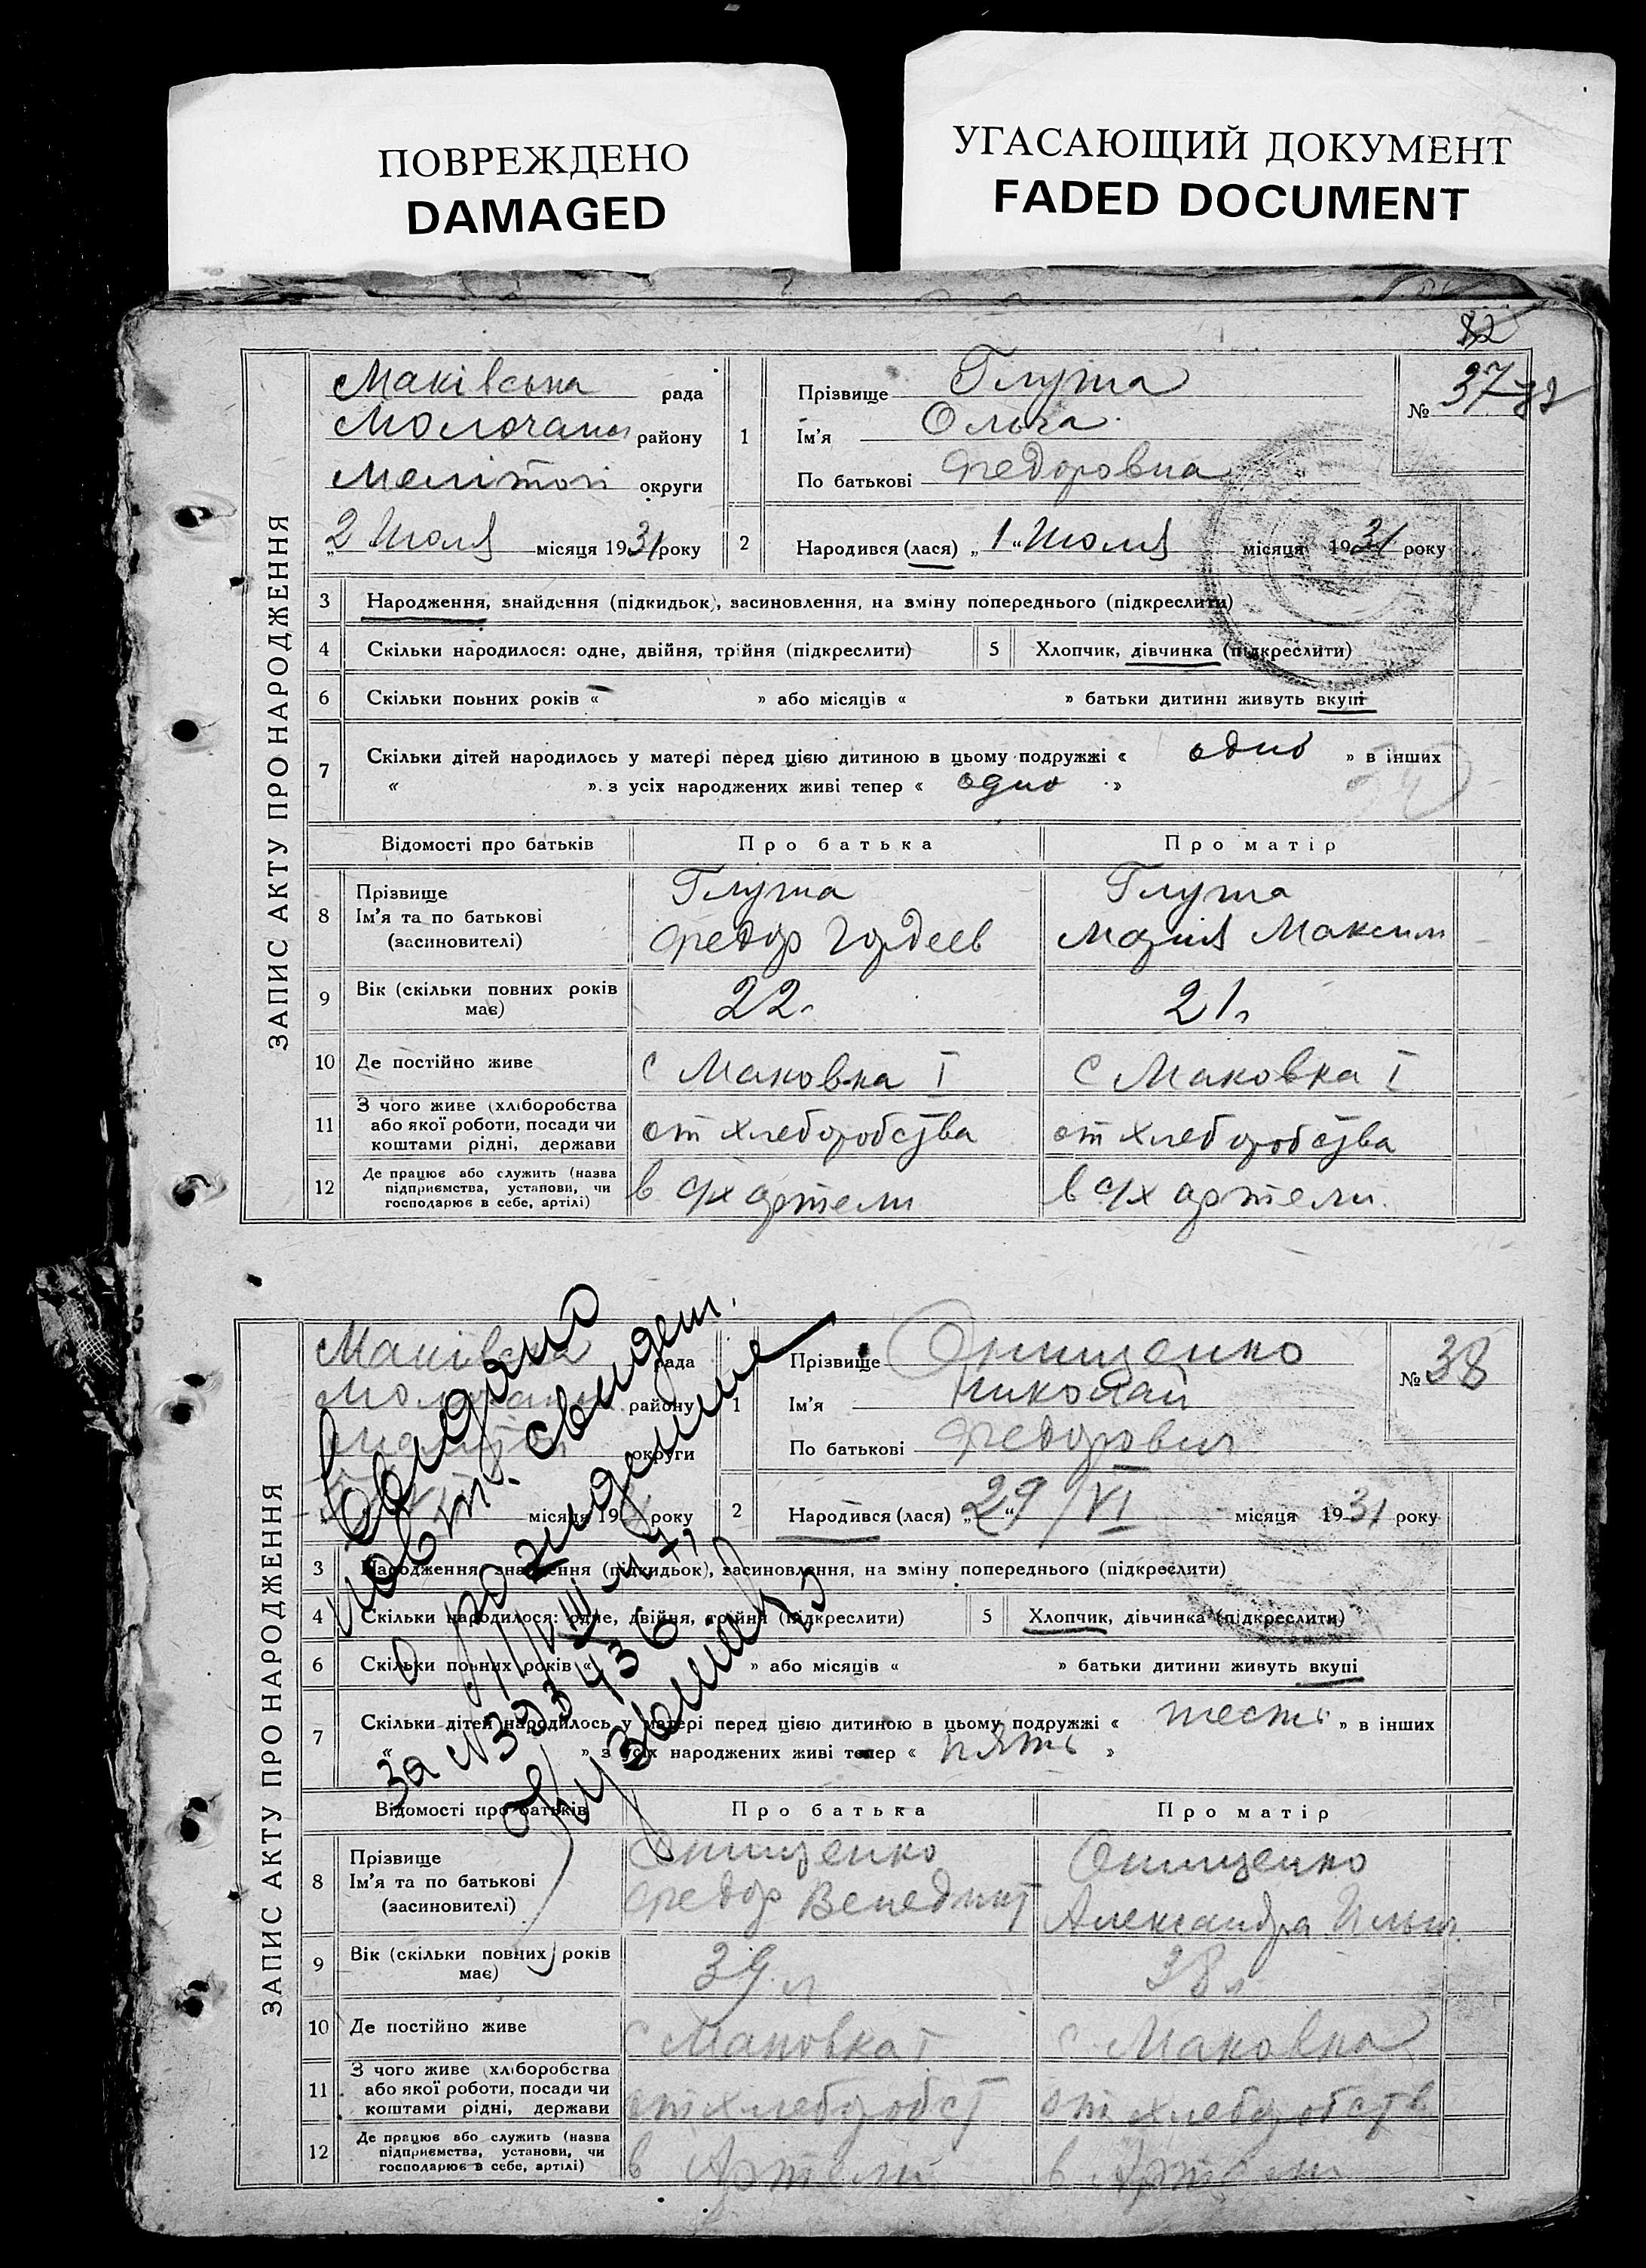 ПОВРЕЖДЕНО
DAMAGED
УГАСАЮЩИЙ ДОКУМЕНТ
FADED DOCUMENT
82
ЗАПИС АКТУ ПРО НАРОДЖЕННЯ
Маківська рада
Молочанс району
Меліточі округи
„2 Июля місяця 1931 року
1 Прізвище Глуша
Ім'я Ольга
По батькові Федоровна
№ 37
2 Народився (лася) „1“ Июля місяця 1931 року
3 Народження, знайдення (підкидьок), засиновлення, на зміну попереднього (підкреслити)
4 Скільки народилося: одне, двійня, трійня (підкреслити) 5 Хлопчик, дівчинка (підкреслити)
6 Скільки повних років « » або місяців « » батьки дитини живуть вкупі
7 Скільки дітей народилось у матері перед цією дитиною в цьому подружжі « одно » в інших
« » з усіх народжених живі тепер « одно »
Відомості про батьків Про батька Про матір
8 Прізвище Глуша Глуша
Ім'я та по батькові Федор Гордеев Мария Максим
(засиновителі)
9 Вік (скільки повних років має) 22. 21л
10 Де постійно живе с Маковка I с Маковка I
11 З чого живе (хліборобства або якої роботи, посади чи коштами рідні, держави от хлеборобства от хлеборобства
12 Де працює або служить (назва підприємства, установи, чи господарює в себе, артілі) в с/х артели в с/х артели.
ЗАПИС АКТУ ПРО НАРОДЖЕННЯ
Маківська рада
району
округи
місяця 19 року
1 Прізвище Онищенко
Ім'я Николай
По батькові Федорович
№ 38
2 Народився (лася) „29“/VI місяця 1931 року
Выдано
повт. свидет.
о рождении
за №
3 Народження, знайдення (підкидьок), засиновлення, на зміну попереднього (підкреслити)
4 Скільки народилося: одне, двійня, трійня (підкреслити) 5 Хлопчик, дівчинка (підкреслити)
6 Скільки повних років « » або місяців « » батьки дитини живуть вкупі
7 Скільки дітей народилось у матері перед цією дитиною в цьому подружжі « шесть » в інших
« » з усіх народжених живі тепер « пять »
Відомості про батьків Про батька Про матір
8 Прізвище Онищенко Онищенко
Ім'я та по батькові Федор Венедикт Александра Ильин.
(засиновителі)
9 Вік (скільки повних років має) 39 л 38 л
10 Де постійно живе с Маковка I с Маковка
11 З чого живе (хліборобства або якої роботи, посади чи коштами рідні, держави от хлебороб от хлебороб
12 Де працює або служить (назва підприємства, установи, чи господарює в себе, артілі) в Артели в Артели